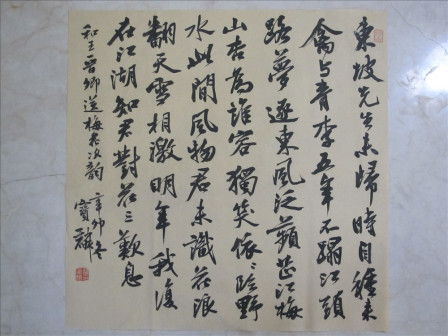 東坡先生未歸時自種来
禽与青李五年不蹋江頭
路夢逐東風泛蘋芷江梅
山杏為誰容獨笑依〻臨野
水此間風物君未識花浪
翻天雪相激明年我復
在江湖知君對花三歎息
和王晋卿送梅花次韵 辛卯冬
寶麟